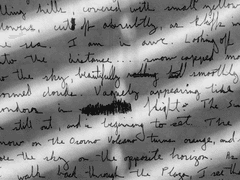 hills, covered with small yellow
flowers, cut off abruptly as it dips in
the sea. I am in awe. Looking off
to the distance.... snow capped mo
to the sky, beautifully smoothly
formed clouds. Vaguely appearing like
condors in flight. The sun
is still out, and is beginning to set. The
snow on the Osorno Volcano turns orange, and
the sky on the opposite horizon
walk back through the Plaza, I see th